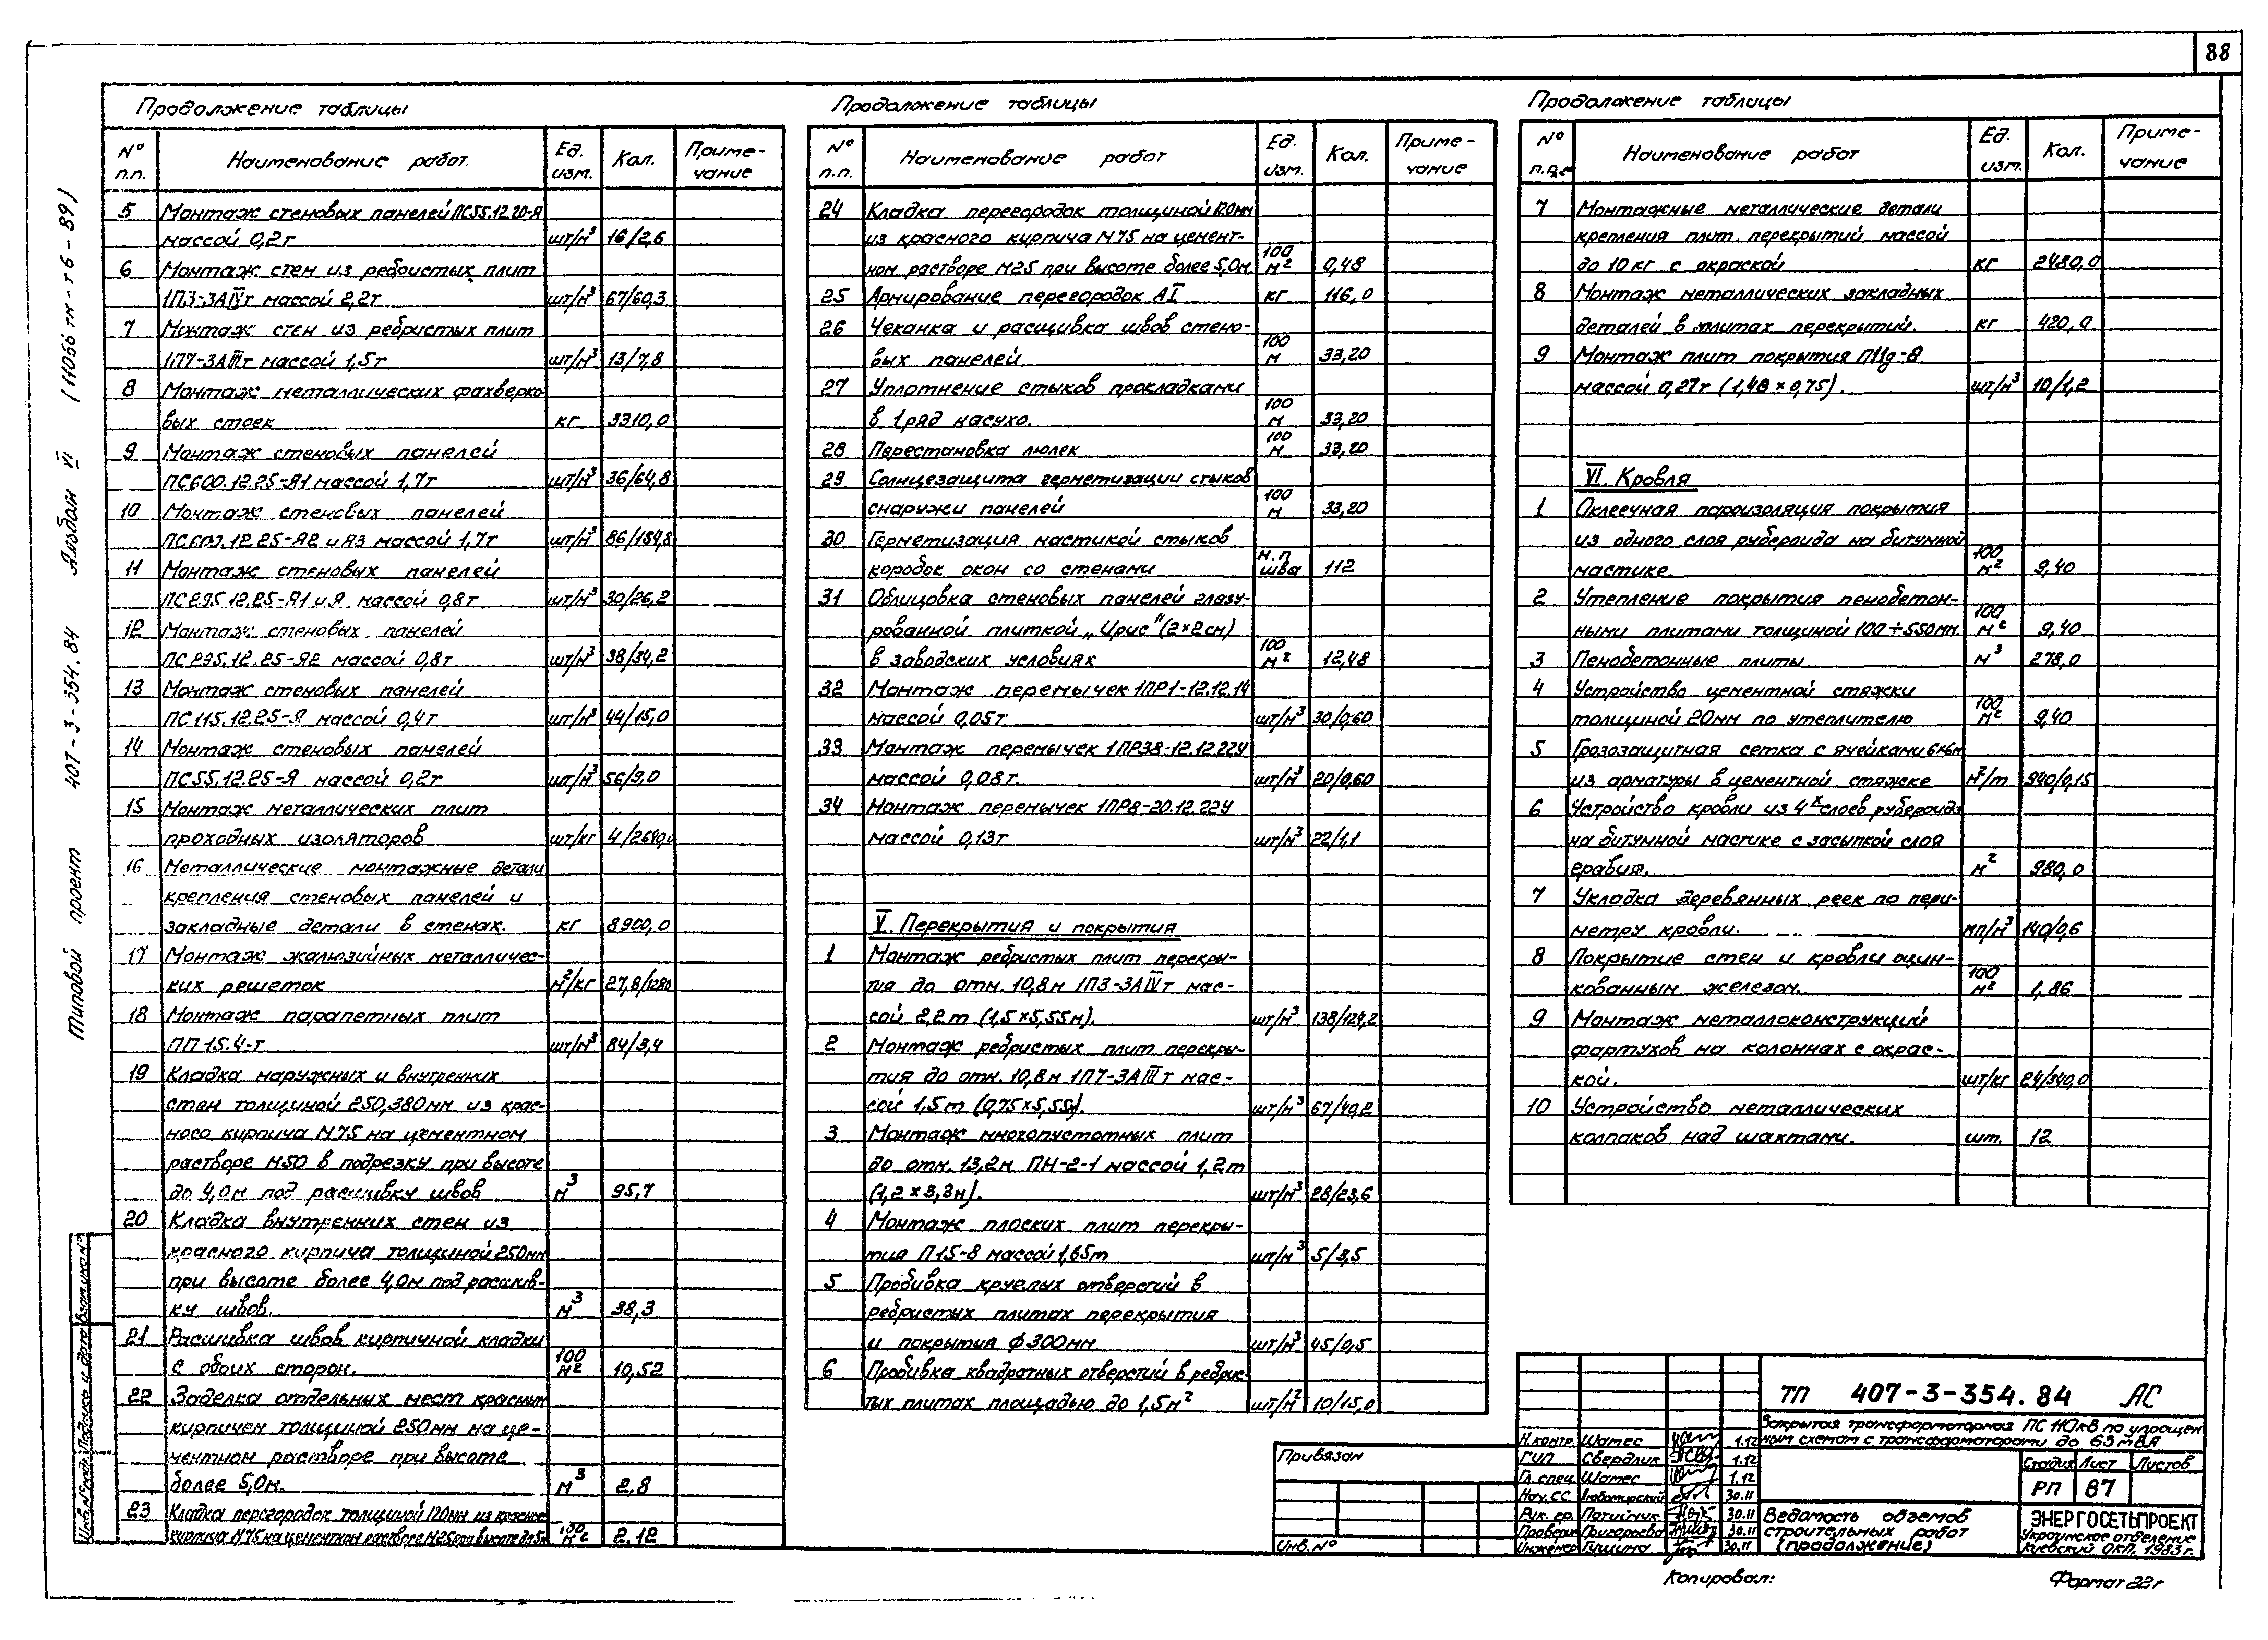 88
Продолжение таблицы
№ п.п. Наименование работ. Ед. изм. Кол. Приме-чание
5 Монтаж стеновых панелей ПС55.12.20-Я
массой 0,2т шт/м³ 16/2,6
6 Монтаж стен из ребристых плит
1П3-3АIVт массой 2,2т шт/м³ 67/60,3
7 Монтаж стен из ребристых плит
1П7-3АIIIт массой 1,5т шт/м³ 13/7,8
8 Монтаж металлических фахверко-
вых стоек кг 3310,0
9 Монтаж стеновых панелей
ПС600.12.25-Я1 массой 1,7т шт/м³ 36/64,8
10 Монтаж стеновых панелей
ПС600.12.25-Я2 и Я3 массой 1,7т шт/м³ 86/154,8
11 Монтаж стеновых панелей
ПС295.12.25-Я1 и Я массой 0,8т шт/м³ 30/26,2
12 Монтаж стеновых панелей
ПС295.12.25-Я2 массой 0,8т шт/м³ 38/34,2
13 Монтаж стеновых панелей
ПС115.12.25-Я массой 0,4т шт/м³ 44/15,0
14 Монтаж стеновых панелей
ПС55.12.25-Я массой 0,2т шт/м³ 56/9,0
15 Монтаж металлических плит
проходных изоляторов шт/кг 4/2640,0
16 Металлические монтажные детали
крепления стеновых панелей и
закладные детали в стенах. кг 8900,0
17 Монтаж жалюзийных металличес-
ких решеток м²/кг 27,8/1280
18 Монтаж парапетных плит
ПП 15.4-т шт/м³ 84/3,4
19 Кладка наружных и внутренних
стен толщиной 250,380мм из крас-
ного кирпича М75 на цементном
растворе М50 в подрезку при высоте
до 4,0м под расшивку швов м³ 95,7
20 Кладка внутренних стен из
красного кирпича толщиной 250мм
при высоте более 4,0м под расшив-
ку швов. м³ 38,3
21 Расшивка швов кирпичной кладки
с обоих сторон. 100 м² 10,52
22 Заделка отдельных мест красным
кирпичем толщиной 250мм на це-
ментном растворе при высоте
более 5,0м. м³ 2,8
23 Кладка перегородок толщиной 120мм из красного
кирпича М75 на цементном растворе М25 при высоте до 5м 100 м² 2,12
Продолжение таблицы
№ п.п. Наименование работ Ед. изм. Кол. Приме-чание
24 Кладка перегородок толщиной 120мм
из красного кирпича М75 на цемент-
ном растворе М25 при высоте более 5,0м 100 м² 0,48
25 Армирование перегородок АI кг 116,0
26 Чеканка и расшивка швов стено-
вых панелей 100 м 33,20
27 Уплотнение стыков прокладками
в 1 ряд насухо. 100 м 33,20
28 Перестановка люлек 100 м 33,20
29 Солнцезащита герметизации стыков
снаружи панелей 100 м 33,20
30 Герметизация мастикой стыков
коробок окон со стенами м.п шва 112
31 Облицовка стеновых панелей глазу-
рованной плиткой „Ирис" (2×2см)
в заводских условиях 100 м² 12,48
32 Монтаж перемычек 1ПР1-12.12.14
массой 0,05т шт/м³ 30/0,60
33 Монтаж перемычек 1ПР38-12.12.22У
массой 0,08т. шт/м³ 20/0,60
34 Монтаж перемычек 1ПР8-20.12.22У
массой 0,13т шт/м³ 22/1,1
V. Перекрытия и покрытия
1 Монтаж ребристых плит перекры-
тия до отм. 10,8м 1П3-3АIVт мас-
сой 2,2т (1,5×5,55м). шт/м³ 138/124,2
2 Монтаж ребристых плит перекры-
тия до отм. 10,8м 1П7-3АIIIт мас-
сой 1,5т (0,75×5,55м). шт/м³ 67/40,2
3 Монтаж многопустотных плит
до отм. 13,2м ПН-2-1 массой 1,2т
(1,2×3,3м). шт/м³ 28/23,6
4 Монтаж плоских плит перекры-
тия П15-8 массой 1,65т шт/м³ 5/3,5
5 Пробивка круглых отверстий в
ребристых плитах перекрытия
и покрытия ф300мм. шт/м³ 45/0,5
6 Пробивка квадратных отверстий в ребрис-
тых плитах площадью до 1,5м² шт/м² 10/15,0
Продолжение таблицы
№ Наименование работ Ед. изм. Кол. Приме-чание
7 Монтажные металлические детали
крепления плит перекрытий массой
до 10кг с окраской кг 2480,0
8 Монтаж металлических закладных
деталей в плитах перекрытий. кг 420,0
9 Монтаж плит покрытия П11д-8
массой 0,27т (1,48×0,75). шт/м³ 10/1,2
VI. Кровля
1 Оклеечная пароизоляция покрытия
из одного слоя рубероида на битумной
мастике. 100 м² 9,40
2 Утепление покрытия пенобетон-
ными плитами толщиной 100÷550мм. 100 м² 9,40
3 Пенобетонные плиты м³ 278,0
4 Устройство цементной стяжки
толщиной 20мм по утеплителю 100 м² 9,40
5 Грозозащитная сетка с ячейками 6×6м
из арматуры в цементной стяжке м²/т 940/0,15
6 Устройство кровли из 4х слоев рубероида
на битумной мастике с засыпкой слоя
гравия. м² 980,0
7 Укладка деревянных реек по пери-
метру кровли. мп/м³ 140/0,6
8 Покрытие стен и кровли оцин-
кованным железом. 100 м² 1,86
9 Монтаж металлоконструкций
фартухов на колоннах с окрас-
кой. шт/кг 24/340,0
10 Устройство металлических
колпаков над шахтами. шт. 12
Типовой проект 407-3-354.84 Альбом VI (11056 тм-т6-89)
Инв.№подл. Подпись и дата Взам.инв№
Привязан
Инв.№
ТП 407-3-354.84 АС
Закрытая трансформаторная ПС 110кВ по упрощен
ным схемам с трансформаторами до 63 МВА
Н.контр. Шамес 1.12
ГИП Свердлик 1.12
Гл.спец. Шамес 1.12
Нач.СС Любомирский 30.11
Рук. гр. 30.11
Проверил Григорьева 30.11
Инженер Гущина 30.11
Стадия Лист Листов
РП 87
Ведомость объемов
строительных работ
(продолжение)
ЭНЕРГОСЕТЬПРОЕКТ
Украинское отделение
Киевский ОКП. 1983г.
Копировал: Формат 22г